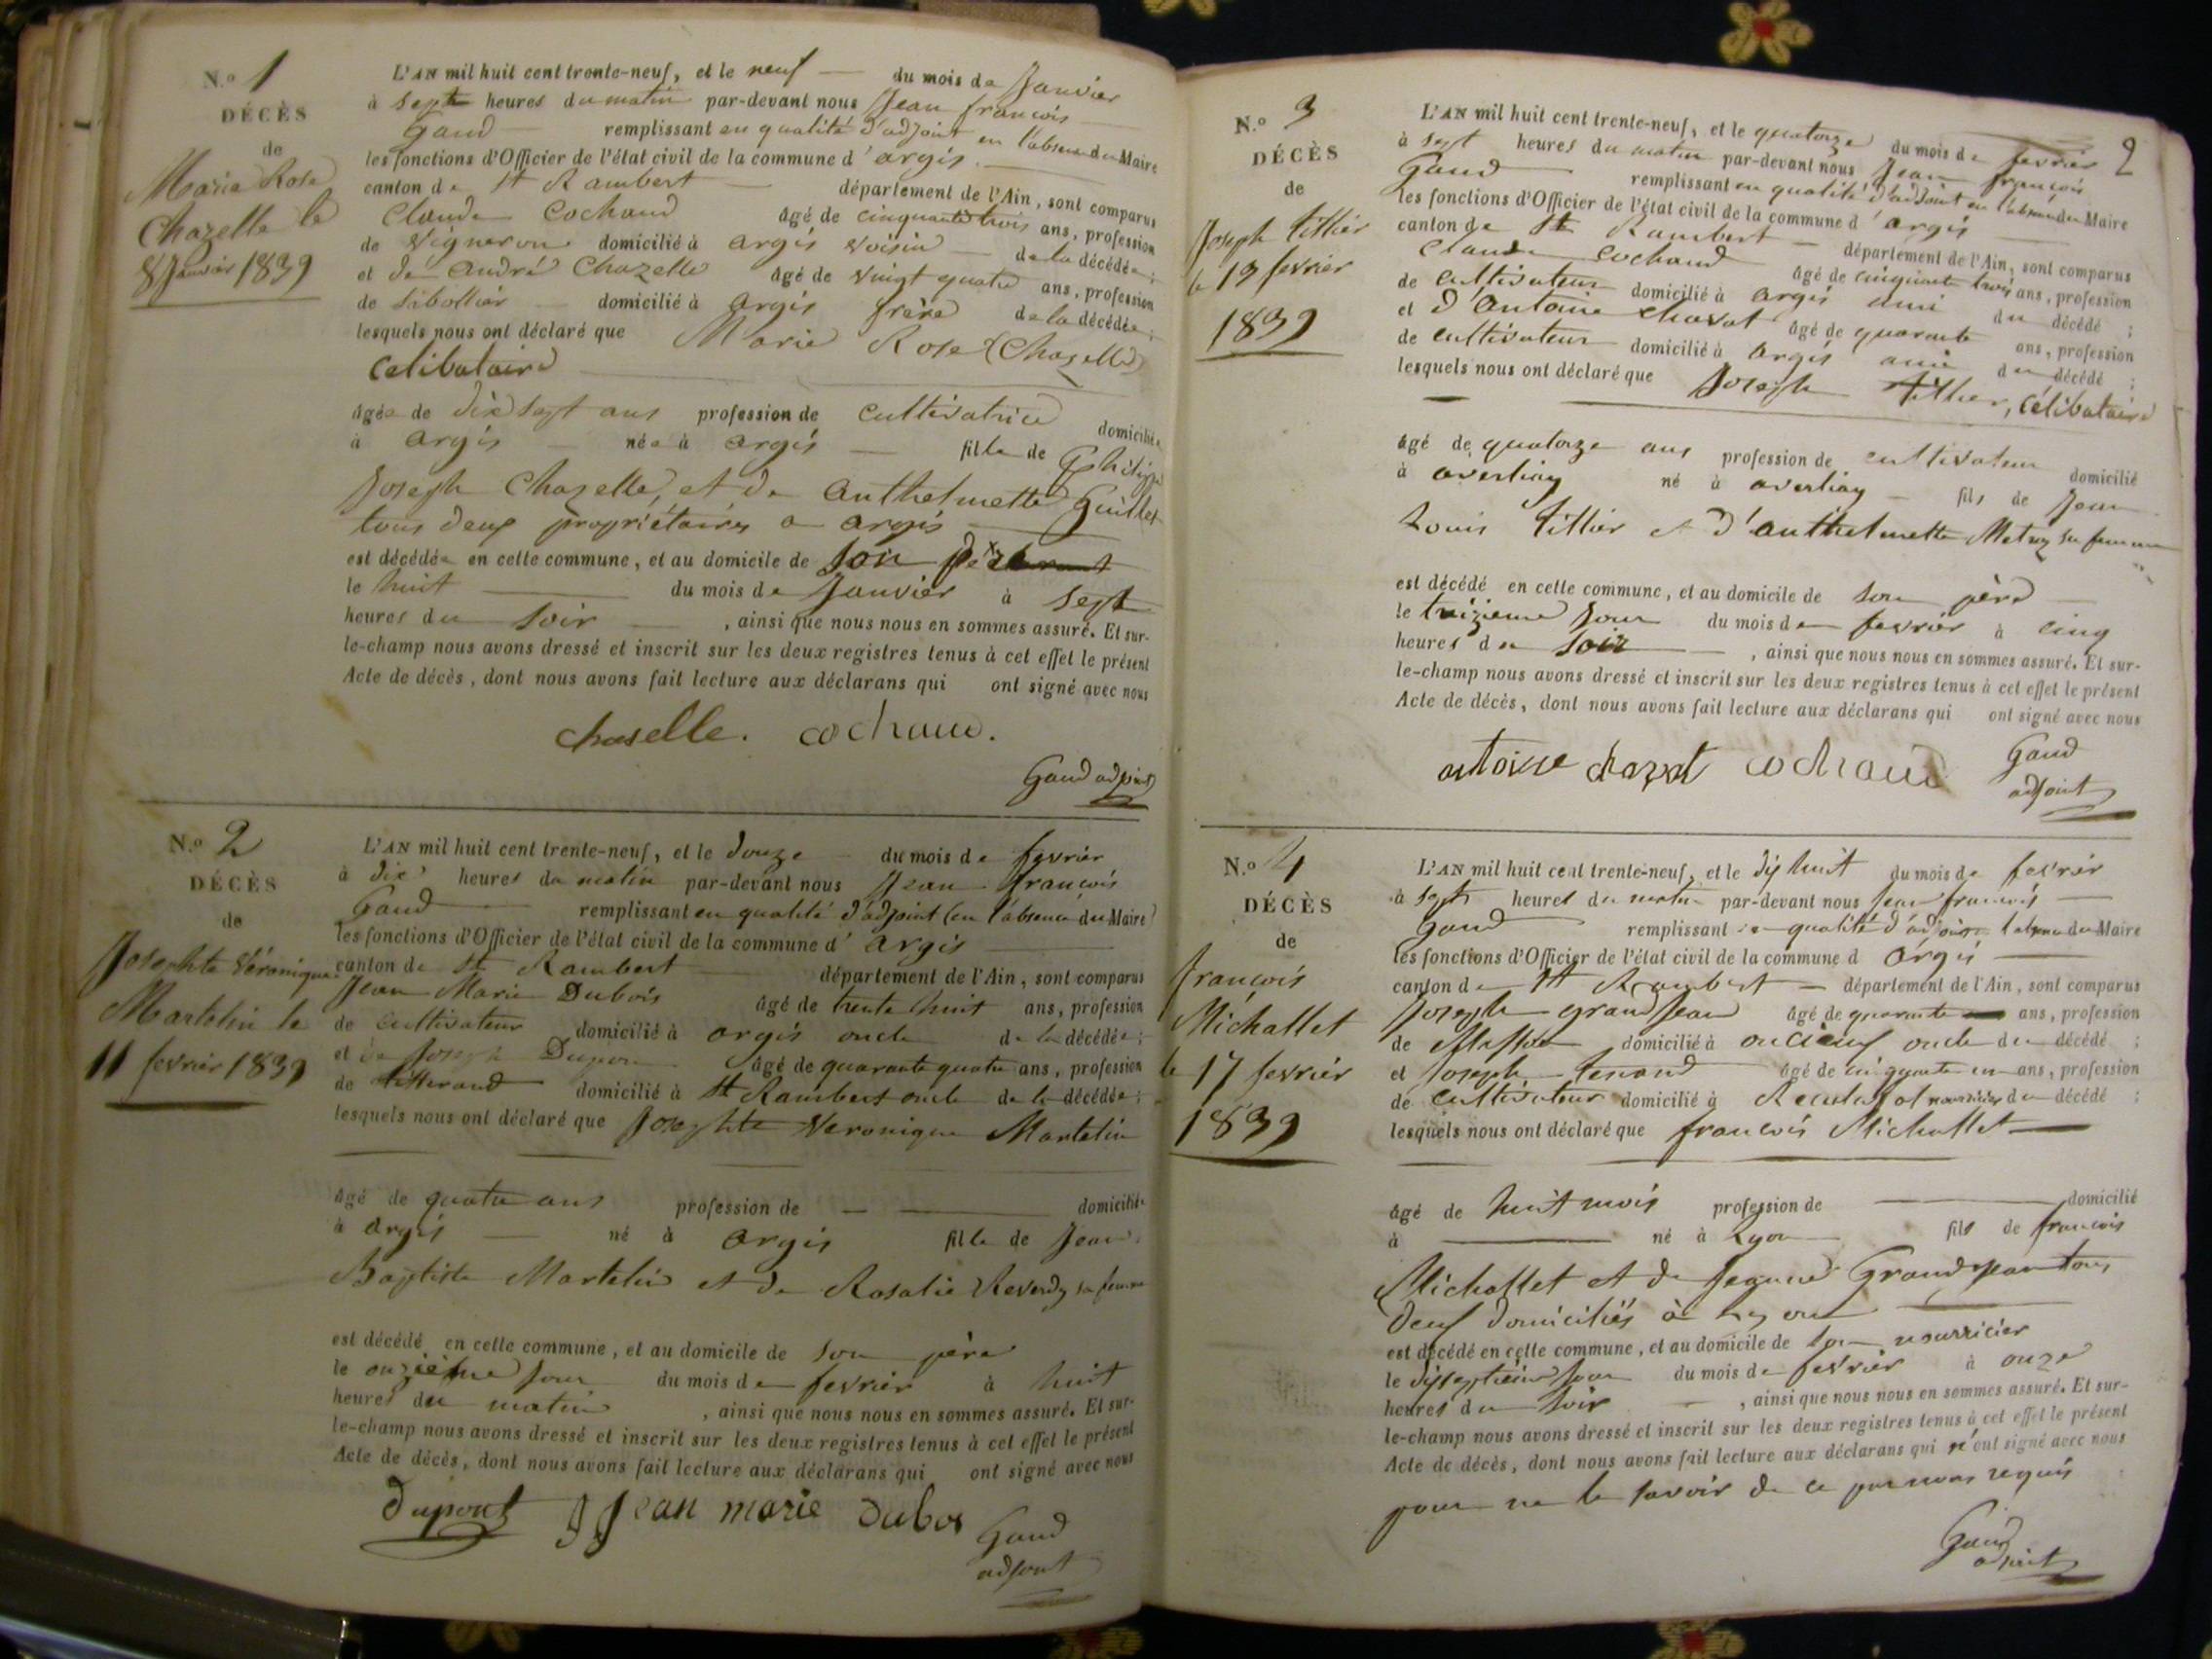 N.º 1
DÉCÈS
de
Marie Rose
Chazelle le
8 Janvier 1839
L'AN mil huit cent trente-neuf, et le neuf du mois de Janvier
à sept heures du matin par-devant nous Jean françois
Gaud remplissant en qualité d'adjoint en l'absence du Maire
les fonctions d'Officier de l'état civil de la commune d'argis
canton de St Rambert département de l'Ain, sont comparus
Claude Cochaud âgé de cinquante trois ans, profession
de vigneron domicilié à argis voisin de la décédée ;
et de andré Chazelle âgé de vingt quatre ans, profession
de domicilié à argis frère de la décédée ;
lesquels nous ont déclaré que Marie Rose Chazelle
Celibataire
âgée de dix sept ans profession de cultivatrice domiciliée
à argis née à argis fille de Philippe
Joseph Chazelle, et de anthelmette Guillet
tous deux propriétaires a argis
est décédée en cette commune, et au domicile de son père
le huit du mois de Janvier à sept
heures du soir, ainsi que nous nous en sommes assuré. Et sur-
le-champ nous avons dressé et inscrit sur les deux registres tenus à cet effet le présent
Acte de décès, dont nous avons fait lecture aux déclarans qui ont signé avec nous
chaselle. cochaud.
Gaud adjoint
N.º 2
DÉCÈS
de
Josephte Véronique
Martelin le
11 fevrier 1839
L'AN mil huit cent trente-neuf, et le douze du mois de fevrier
à dix heures du matin par-devant nous Jean françois
Gaud remplissant en qualité d'adjoint (en l'absence du Maire)
les fonctions d'Officier de l'état civil de la commune d'argis
canton de St Rambert département de l'Ain, sont comparus
Jean Marie Dubois âgé de trente huit ans, profession
de cultivateur domicilié à argis oncle de la décédée ;
et de Joseph Dupon âgé de quarante quatre ans, profession
de tisserand domicilié à St Rambert oncle de la décédée ;
lesquels nous ont déclaré que Josephte Veronique Martelin
âgé de quatre ans profession de domiciliée
à argis né à argis fille de Jean
Baptiste Martelin et de Rosalie Reverdy sa femme
est décédé en cette commune, et au domicile de son père
le onzième jour du mois de fevrier à huit
heures du matin, ainsi que nous nous en sommes assuré. Et sur-
le-champ nous avons dressé et inscrit sur les deux registres tenus à cet effet le présent
Acte de décès, dont nous avons fait lecture aux déclarans qui ont signé avec nous
Dupont Jean marie dubos
Gaud
adjoint
2
N.º 3
DÉCÈS
de
Joseph tittier
le 13 fevrier
1839
L'AN mil huit cent trente-neuf, et le quatorze du mois de fevrier
à sept heures du matin par-devant nous Jean françois
Gaud remplissant en qualité d'adjoint en l'absence du Maire
les fonctions d'Officier de l'état civil de la commune d'argis
canton de St Rambert département de l'Ain, sont comparus
Claude Cochaud âgé de cinquante trois ans, profession
de cultivateur domicilié à argis ami du décédé ;
et d'antoine chavat âgé de quarante ans, profession
de cultivateur domicilié à argis ami du décédé ;
lesquels nous ont déclaré que Joseph tittier, célibataire
âgé de quatorze ans profession de cultivateur domicilié
à averliay né à averliay fils de Jean
Louis tittier et d'anthelmette Metroz sa femme
est décédé en cette commune, et au domicile de son père
le treizieme jour du mois de fevrier à cinq
heures du soir, ainsi que nous nous en sommes assuré. Et sur-
le-champ nous avons dressé et inscrit sur les deux registres tenus à cet effet le présent
Acte de décès, dont nous avons fait lecture aux déclarans qui ont signé avec nous
antoine chavat cochaud Gaud
adjoint
N.º 4
DÉCÈS
de
françois
Michallet
le 17 fevrier
1839
L'AN mil huit cent trente-neuf, et le dix huit du mois de fevrier
à sept heures du matin par-devant nous Jean françois
Gaud remplissant en qualité d'adjoint l'absence du Maire
les fonctions d'Officier de l'état civil de la commune d argis
canton de St Rambert département de l'Ain, sont comparus
Joseph grandJean âgé de quarante ans, profession
de domicilié à oncieux oncle du décédé ;
et Joseph tenand âgé de cinquante un ans, profession
de cultivateur domicilié à nourricier du décédé ;
lesquels nous ont déclaré que françois Michallet
âgé de huit mois profession de domicilié
à né à Lyon fils de françois
Michallet et de Jeanne Grandjean tous
deux domiciliés à Lyon
est décédé en cette commune, et au domicile de son nourricier
le dixseptième jour du mois de fevrier à onze
heures du soir, ainsi que nous nous en sommes assuré. Et sur-
le-champ nous avons dressé et inscrit sur les deux registres tenus à cet effet le présent
Acte de décès, dont nous avons fait lecture aux déclarans qui n'ont signé avec nous
pour ne le savoir de ce par nous requis
Gaud
adjoint